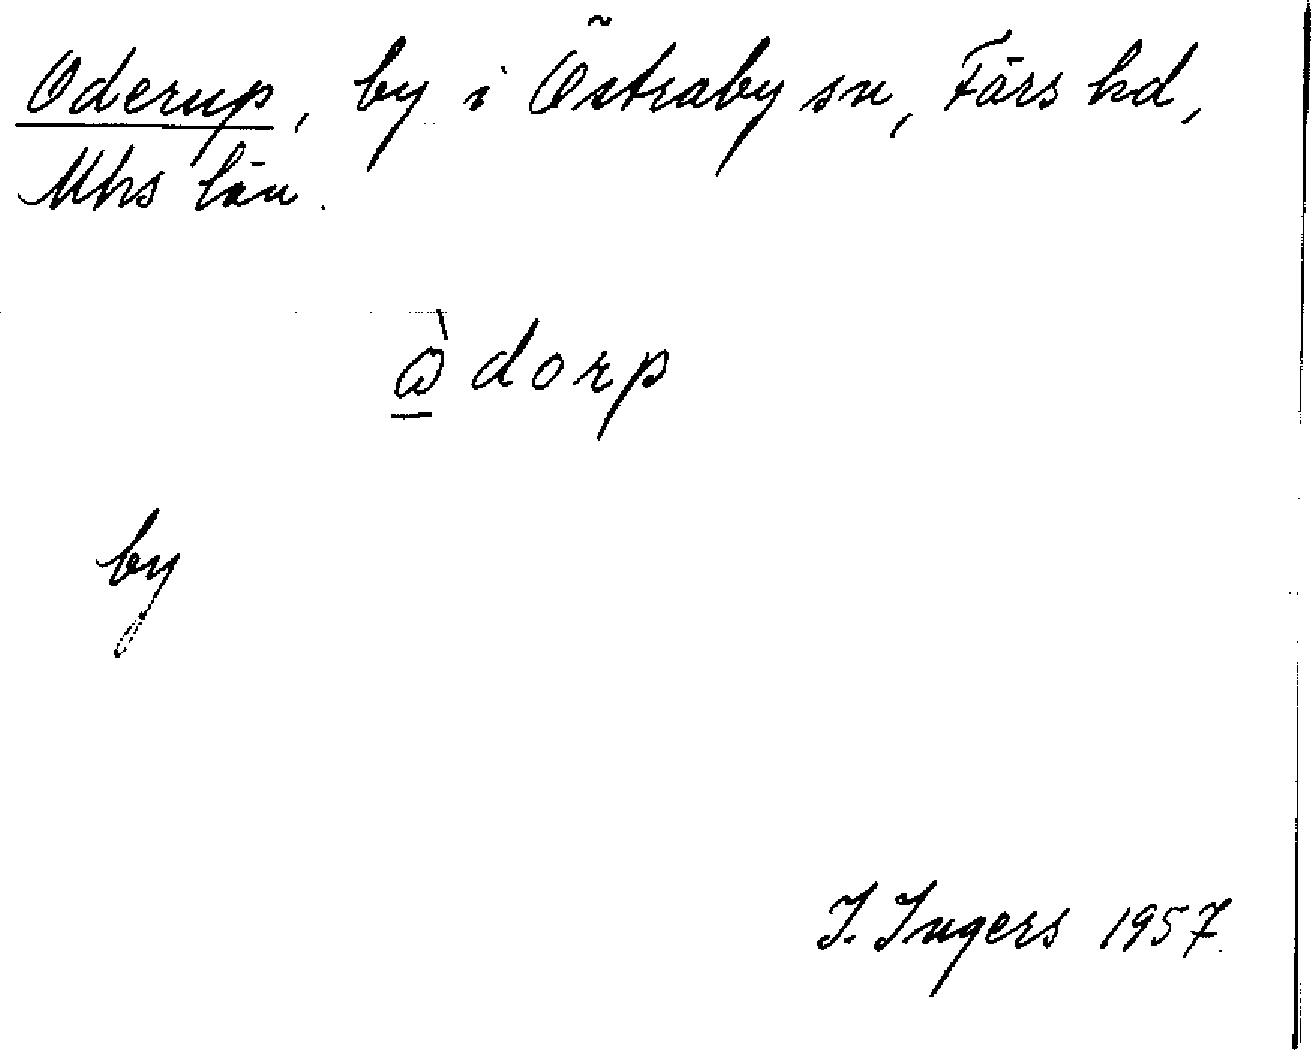 Oderup, by i Östraby sn, Färs hd,
Mhs län.
ὼ̱dorp
by
I. Ingers 1957.